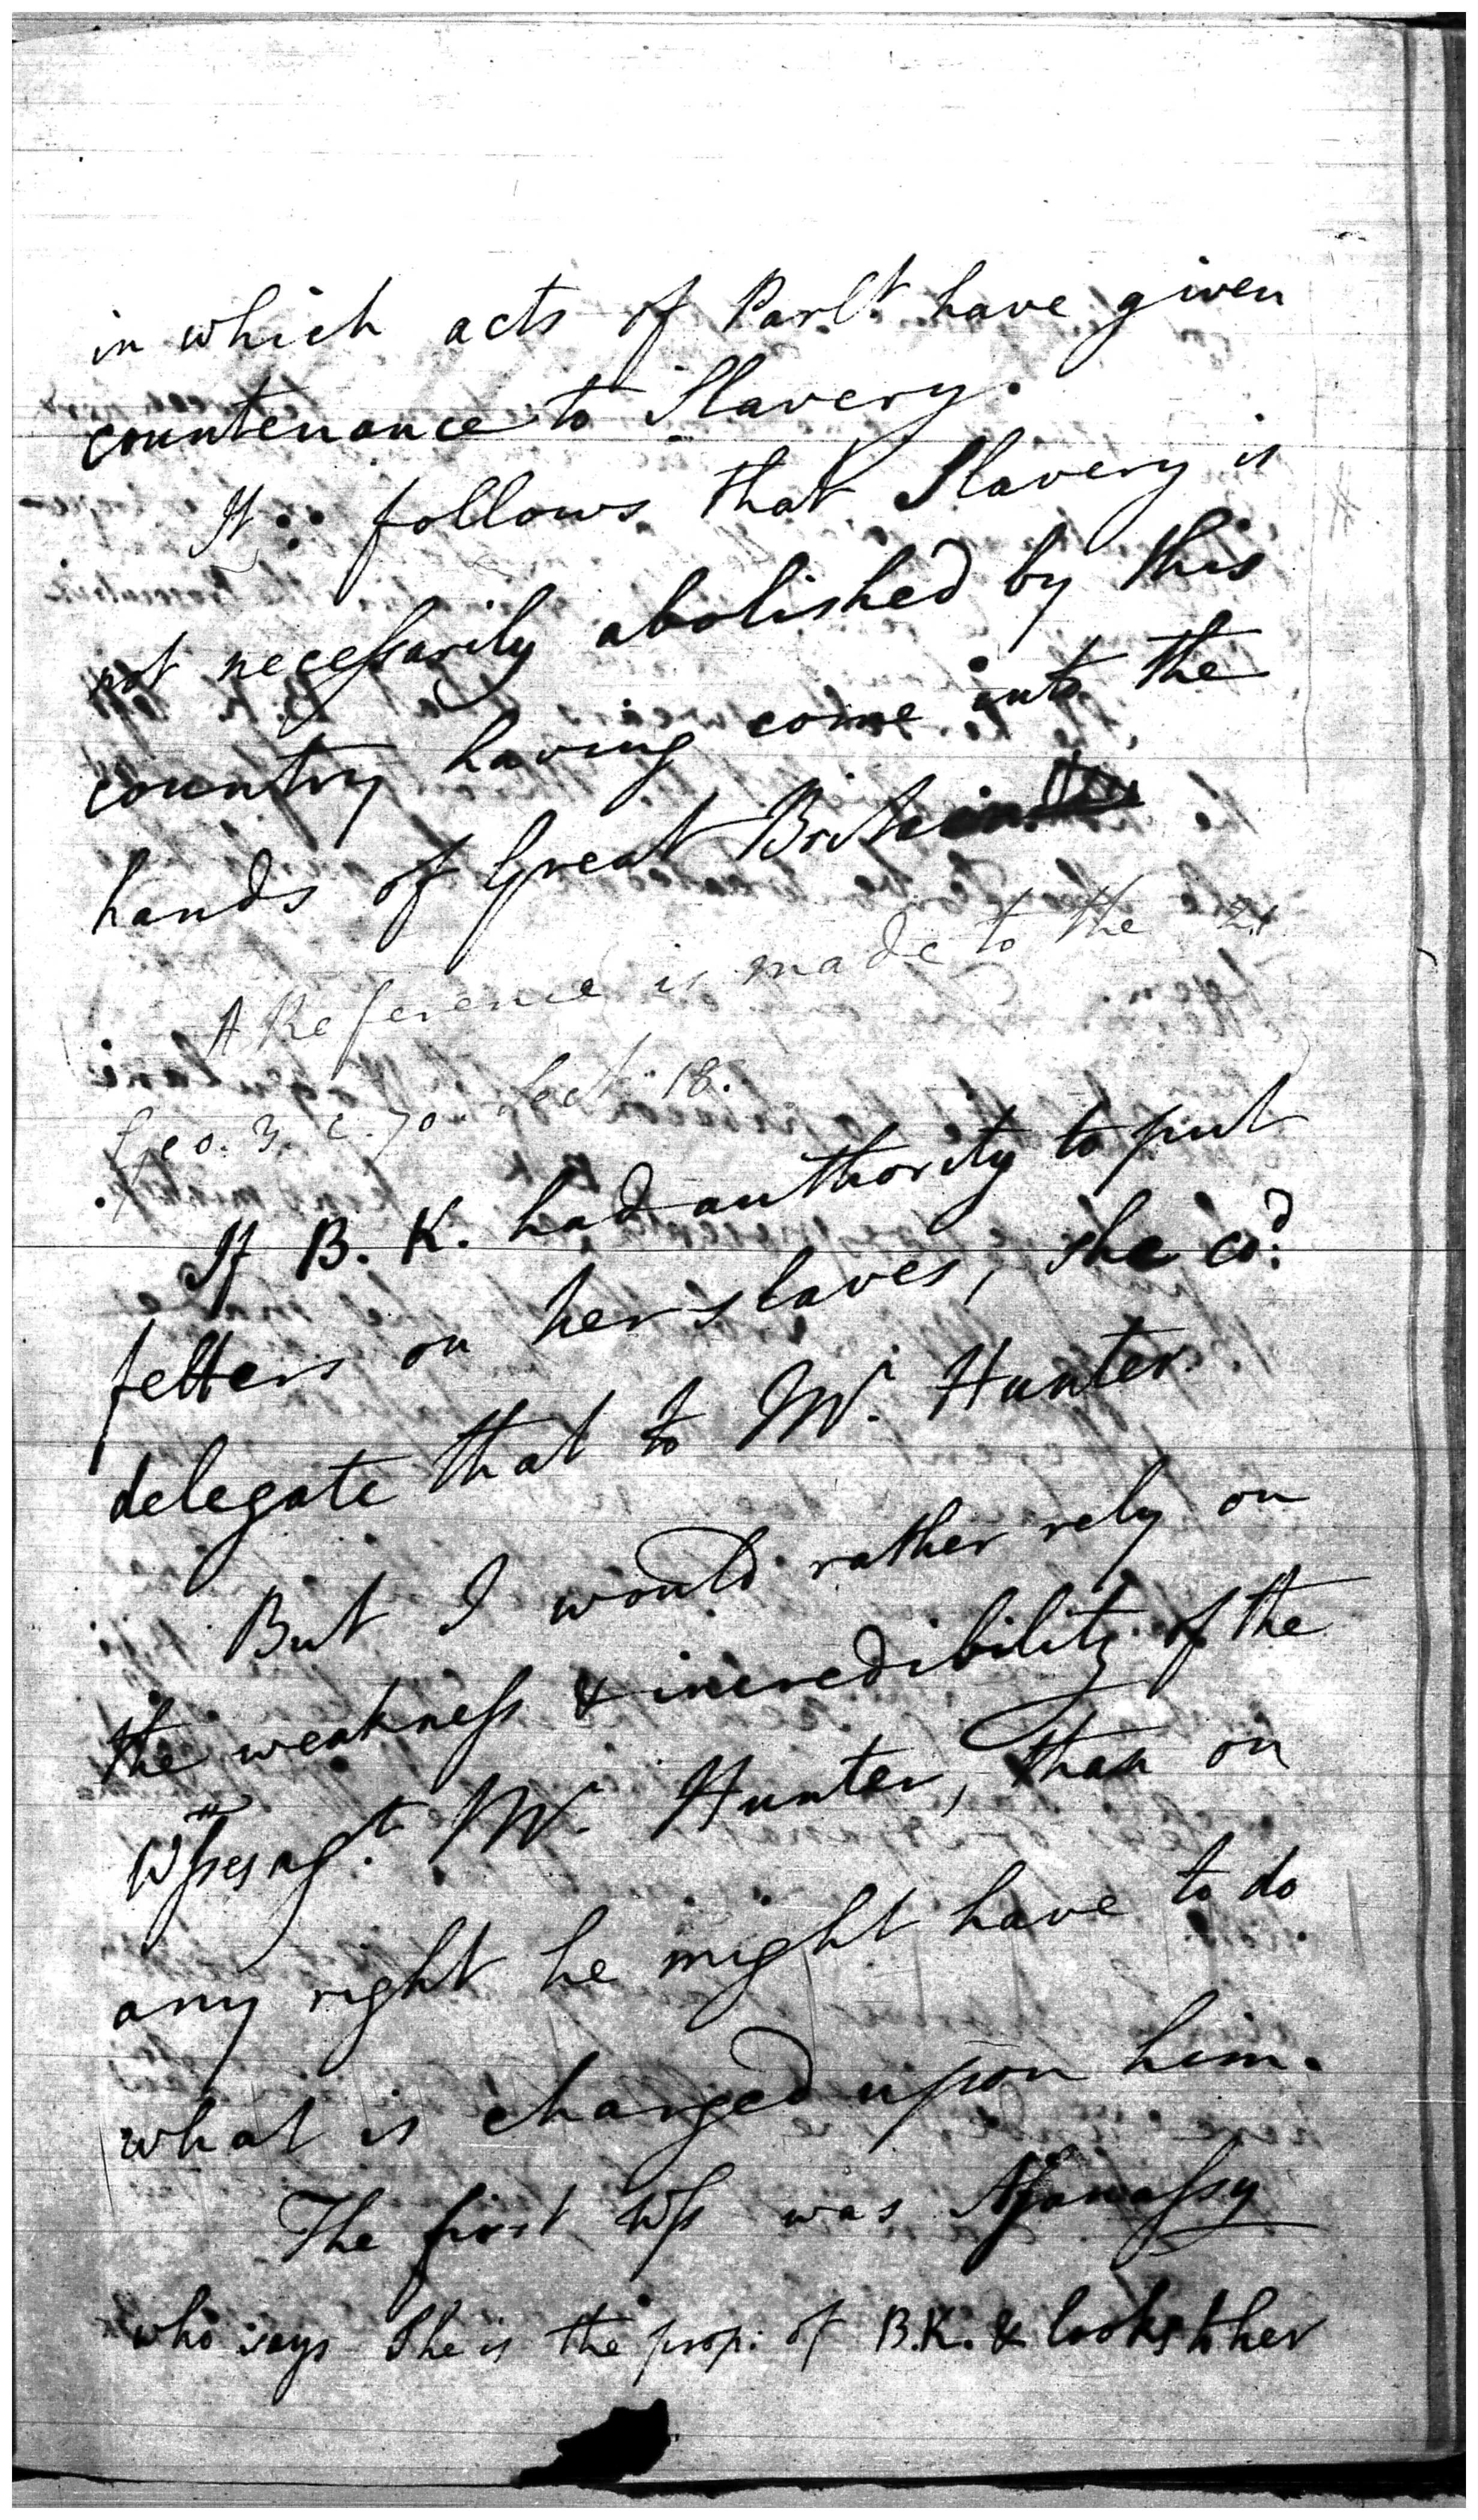 in which acts of Parlt. have given
countenance to Slavery.
It ∴ follows that Slavery is
not necessarily abolished by this
country having come into the
hands of Great Britain
A Reference is made to the 21
Geo. 3. c. 70. Sect. 18.
If B. K. had authority to put
fetters on her slaves, she cod.
delegate that to Mr. Hunter.
But I would rather rely on
the weakness & incredibility of the
Wsses agt. Mr. Hunter, than on
any right he might have to do
what is charged upon him.
The first Wss was Ajanassy
who says She is the prop: of B.K. & looks to her